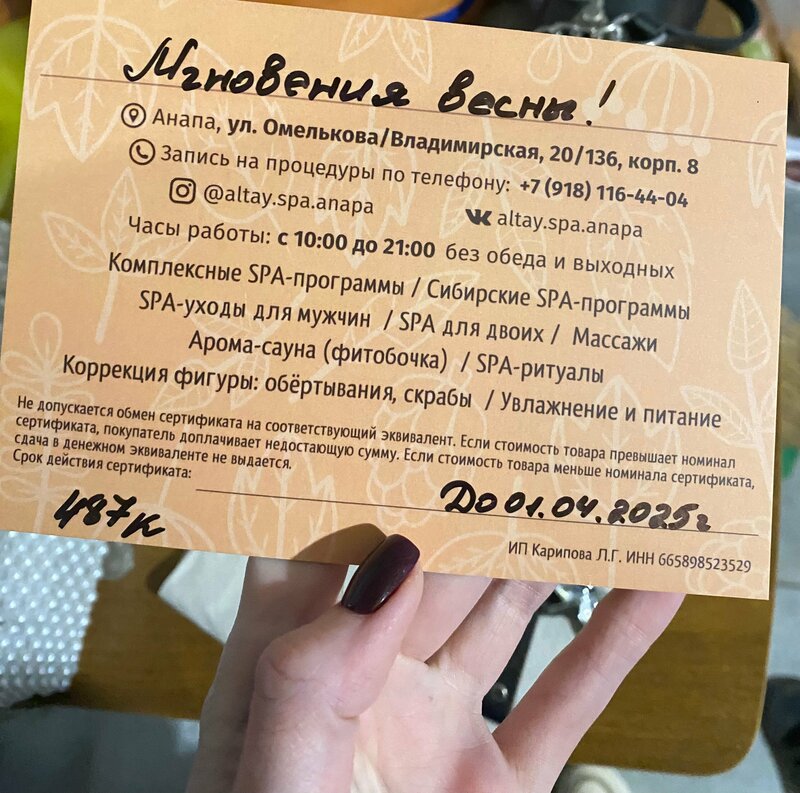 Мгновения весны!
Анапа, ул. Омелькова/Владимирская, 20/136, корп. 8
Запись на процедуры по телефону: +7 (918) 116-44-04
@altay.spa.anapa altay.spa.anapa
Часы работы: с 10:00 до 21:00 без обеда и выходных
Комплексные SPA-программы / Сибирские SPA-программы
SPA-уходы для мужчин / SPA для двоих / Массажи
Арома-сауна (фитобочка) / SPA-ритуалы
Коррекция фигуры: обёртывания, скрабы / Увлажнение и питание
Не допускается обмен сертификата на соответствующий эквивалент. Если стоимость товара превышает номинал
сертификата, покупатель доплачивает недостающую сумму. Если стоимость товара меньше номинала сертификата,
сдача в денежном эквиваленте не выдается.
Срок действия сертификата:
До 01.04.2025г
487к
ИП Карипова Л.Г. ИНН 665898523529